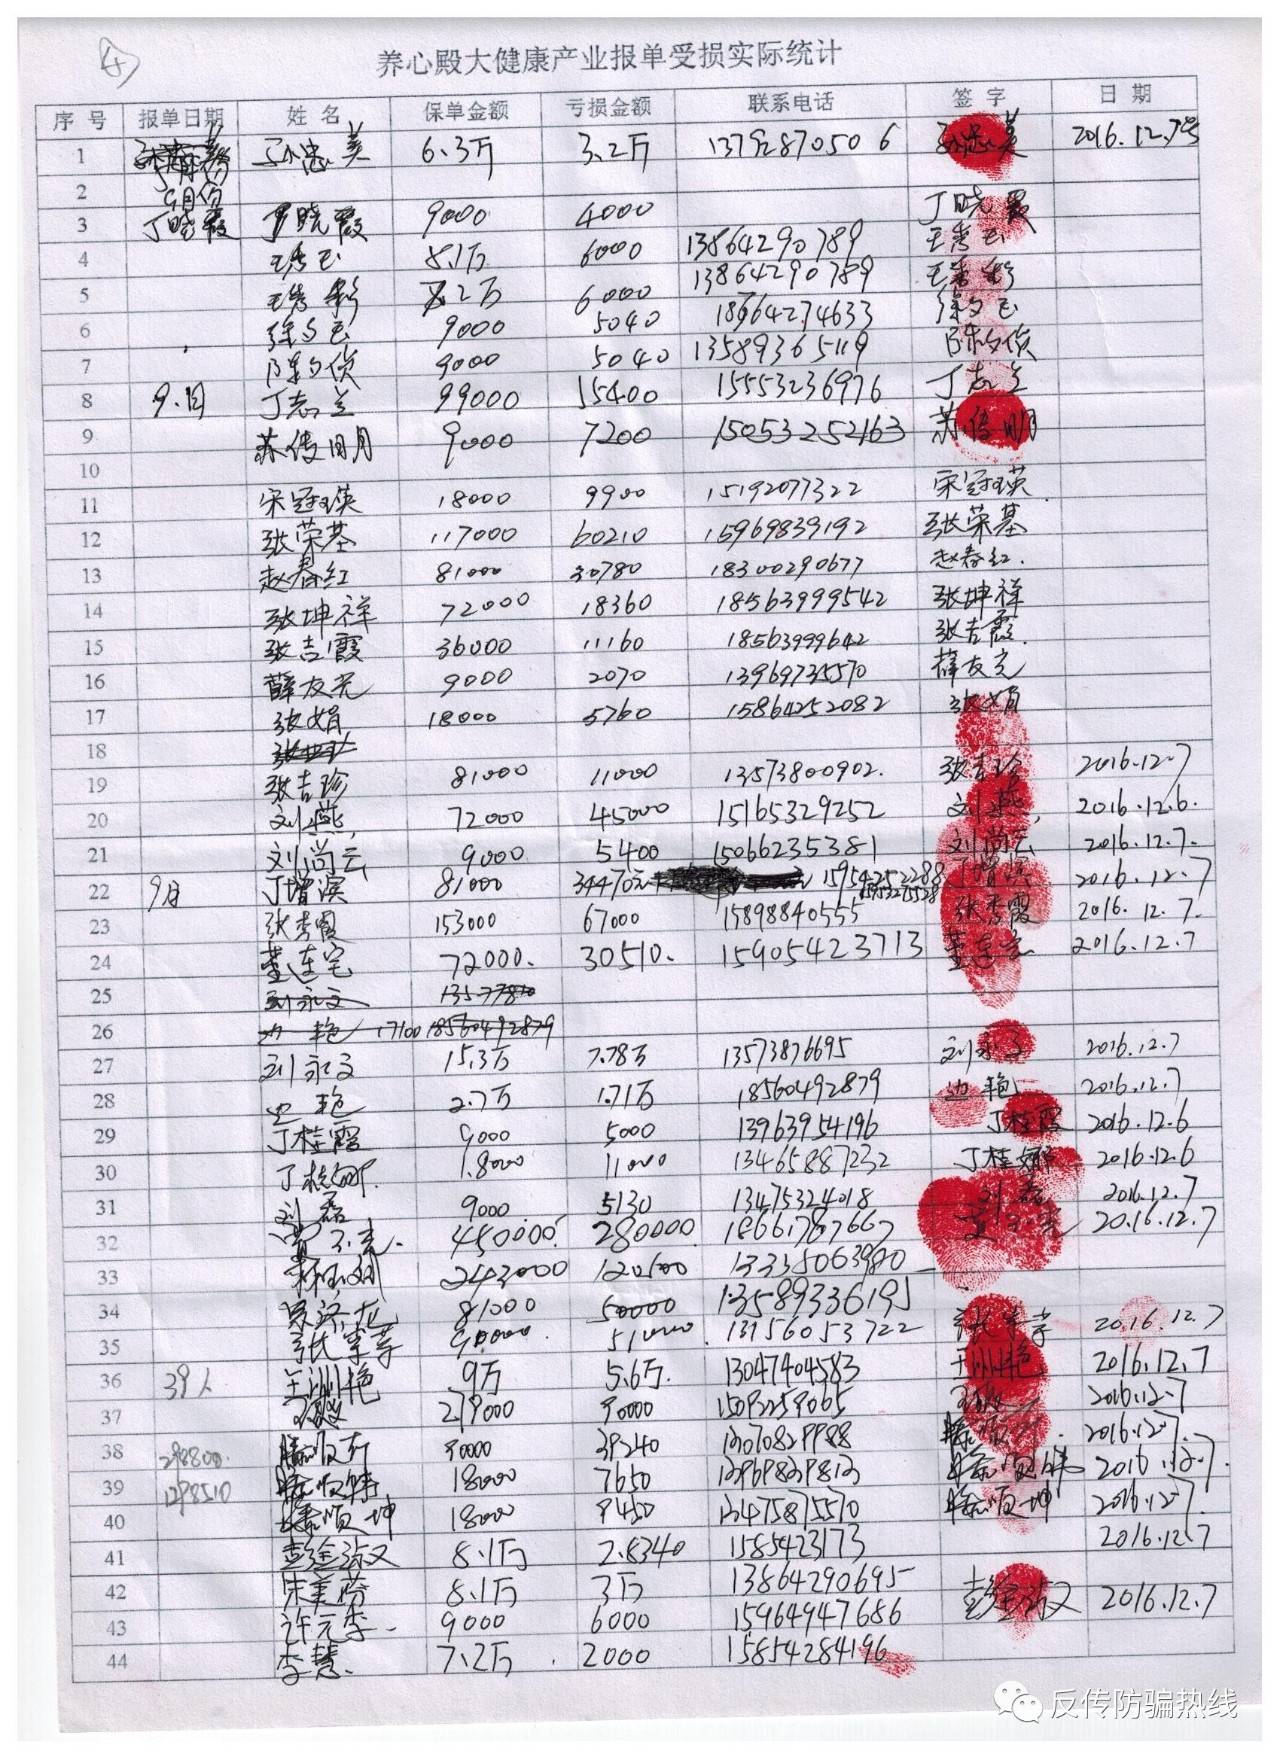 4
养心殿大健康产业报单受损实际统计
序号 报单日期 姓名 保单金额 亏损金额 联系电话 签字 日期
1 孙忠美 6.3万 3.2万 13792870506 孙忠美 2016.12.7号
2 9月份
3 丁晓霞 丁晓霞 9000 4000 丁晓霞
4 王秀玉 8.1万 6000 13864290789 王秀玉
5 王秀彩 2万 6000 13864290789 王秀彩
6 徐文玉 9000 5040 18664274633 徐文玉
7 陈文侦 9000 5040 13589365119 陈文侦
8 9.月 丁志兰 99000 15400 15553236976 丁志兰
9 苏传明 9000 7200 15053252163 苏传明
10
11 宋冠瑛 18000 9900 15192077322 宋冠瑛
12 张荣基 117000 60210 15969839192 张荣基
13 赵春红 81000 30780 18300290677 赵春红.
14 张坤祥 72000 18360 18563999542 张坤祥
15 张吉霞 36000 11160 18563999642 张吉霞.
16 薛友光 9000 2070 13969735570 薛友光
17 张娟 18000 5760 15864252082 张娟
18
19 张吉珍 81000 11000 13573800902. 张吉珍 2016.12.7
20 刘燕, 72000 45000 15165329252 刘燕, 2016.12.6.
21 刘尚云 9000 5400 15066235381 刘尚云 2016.12.7.
22 9月 丁增滨 81000 34470元 15954252288 丁增滨 2016.12.7
23 张秀霞 153000 67000 15898840555 张秀霞 2016.12.7.
24 董连宅 72000. 30510. 15905423713 董连宅 2016.12.7
25 刘永文
26 边艳 17100 18560492879
27 刘永文 15.3万 7.78万 13573876695 刘永文 2016.12.7
28 边艳 2.7万 1.71万 18560492879 边艳 2016.12.7
29 丁桂霞 9000 5000 13963954196 丁桂霞 2016.12.6
30 丁桂娜. 1.8000 11000 13465887232 丁桂娜 2016.12.6
31 刘磊 9000 5130 13475324018 刘磊 2016.12.7
32 450000. 280000 18661787667 2016.12.7
33 243000 120500 13335063980
34 81000 50000 13589336195
35 90000. 51000. 13156053722 2016.12.7
36 39人 王洲艳 9万 5.6万. 13047404583 王洲艳 2016.12.7
37 279000 90000 15092259065 2016.12.7
38 298800. 90000 39240 13070829988 2016.12.7.
39 1298510 18000 7650 2016.12.7.
40 滕顺坤 18000 9450 13475875570 滕顺坤 2016.12.7.
41 彭徐淑义 8.1万 2.8340 1585423173 2016.12.7
42 朱美芬 8.1万 3万 13864290695 彭徐淑义 2016.12.7
43 许元季. 9000 6000 15964947686
44 李慧. 7.2万 2000 15854284196
反传防骗热线